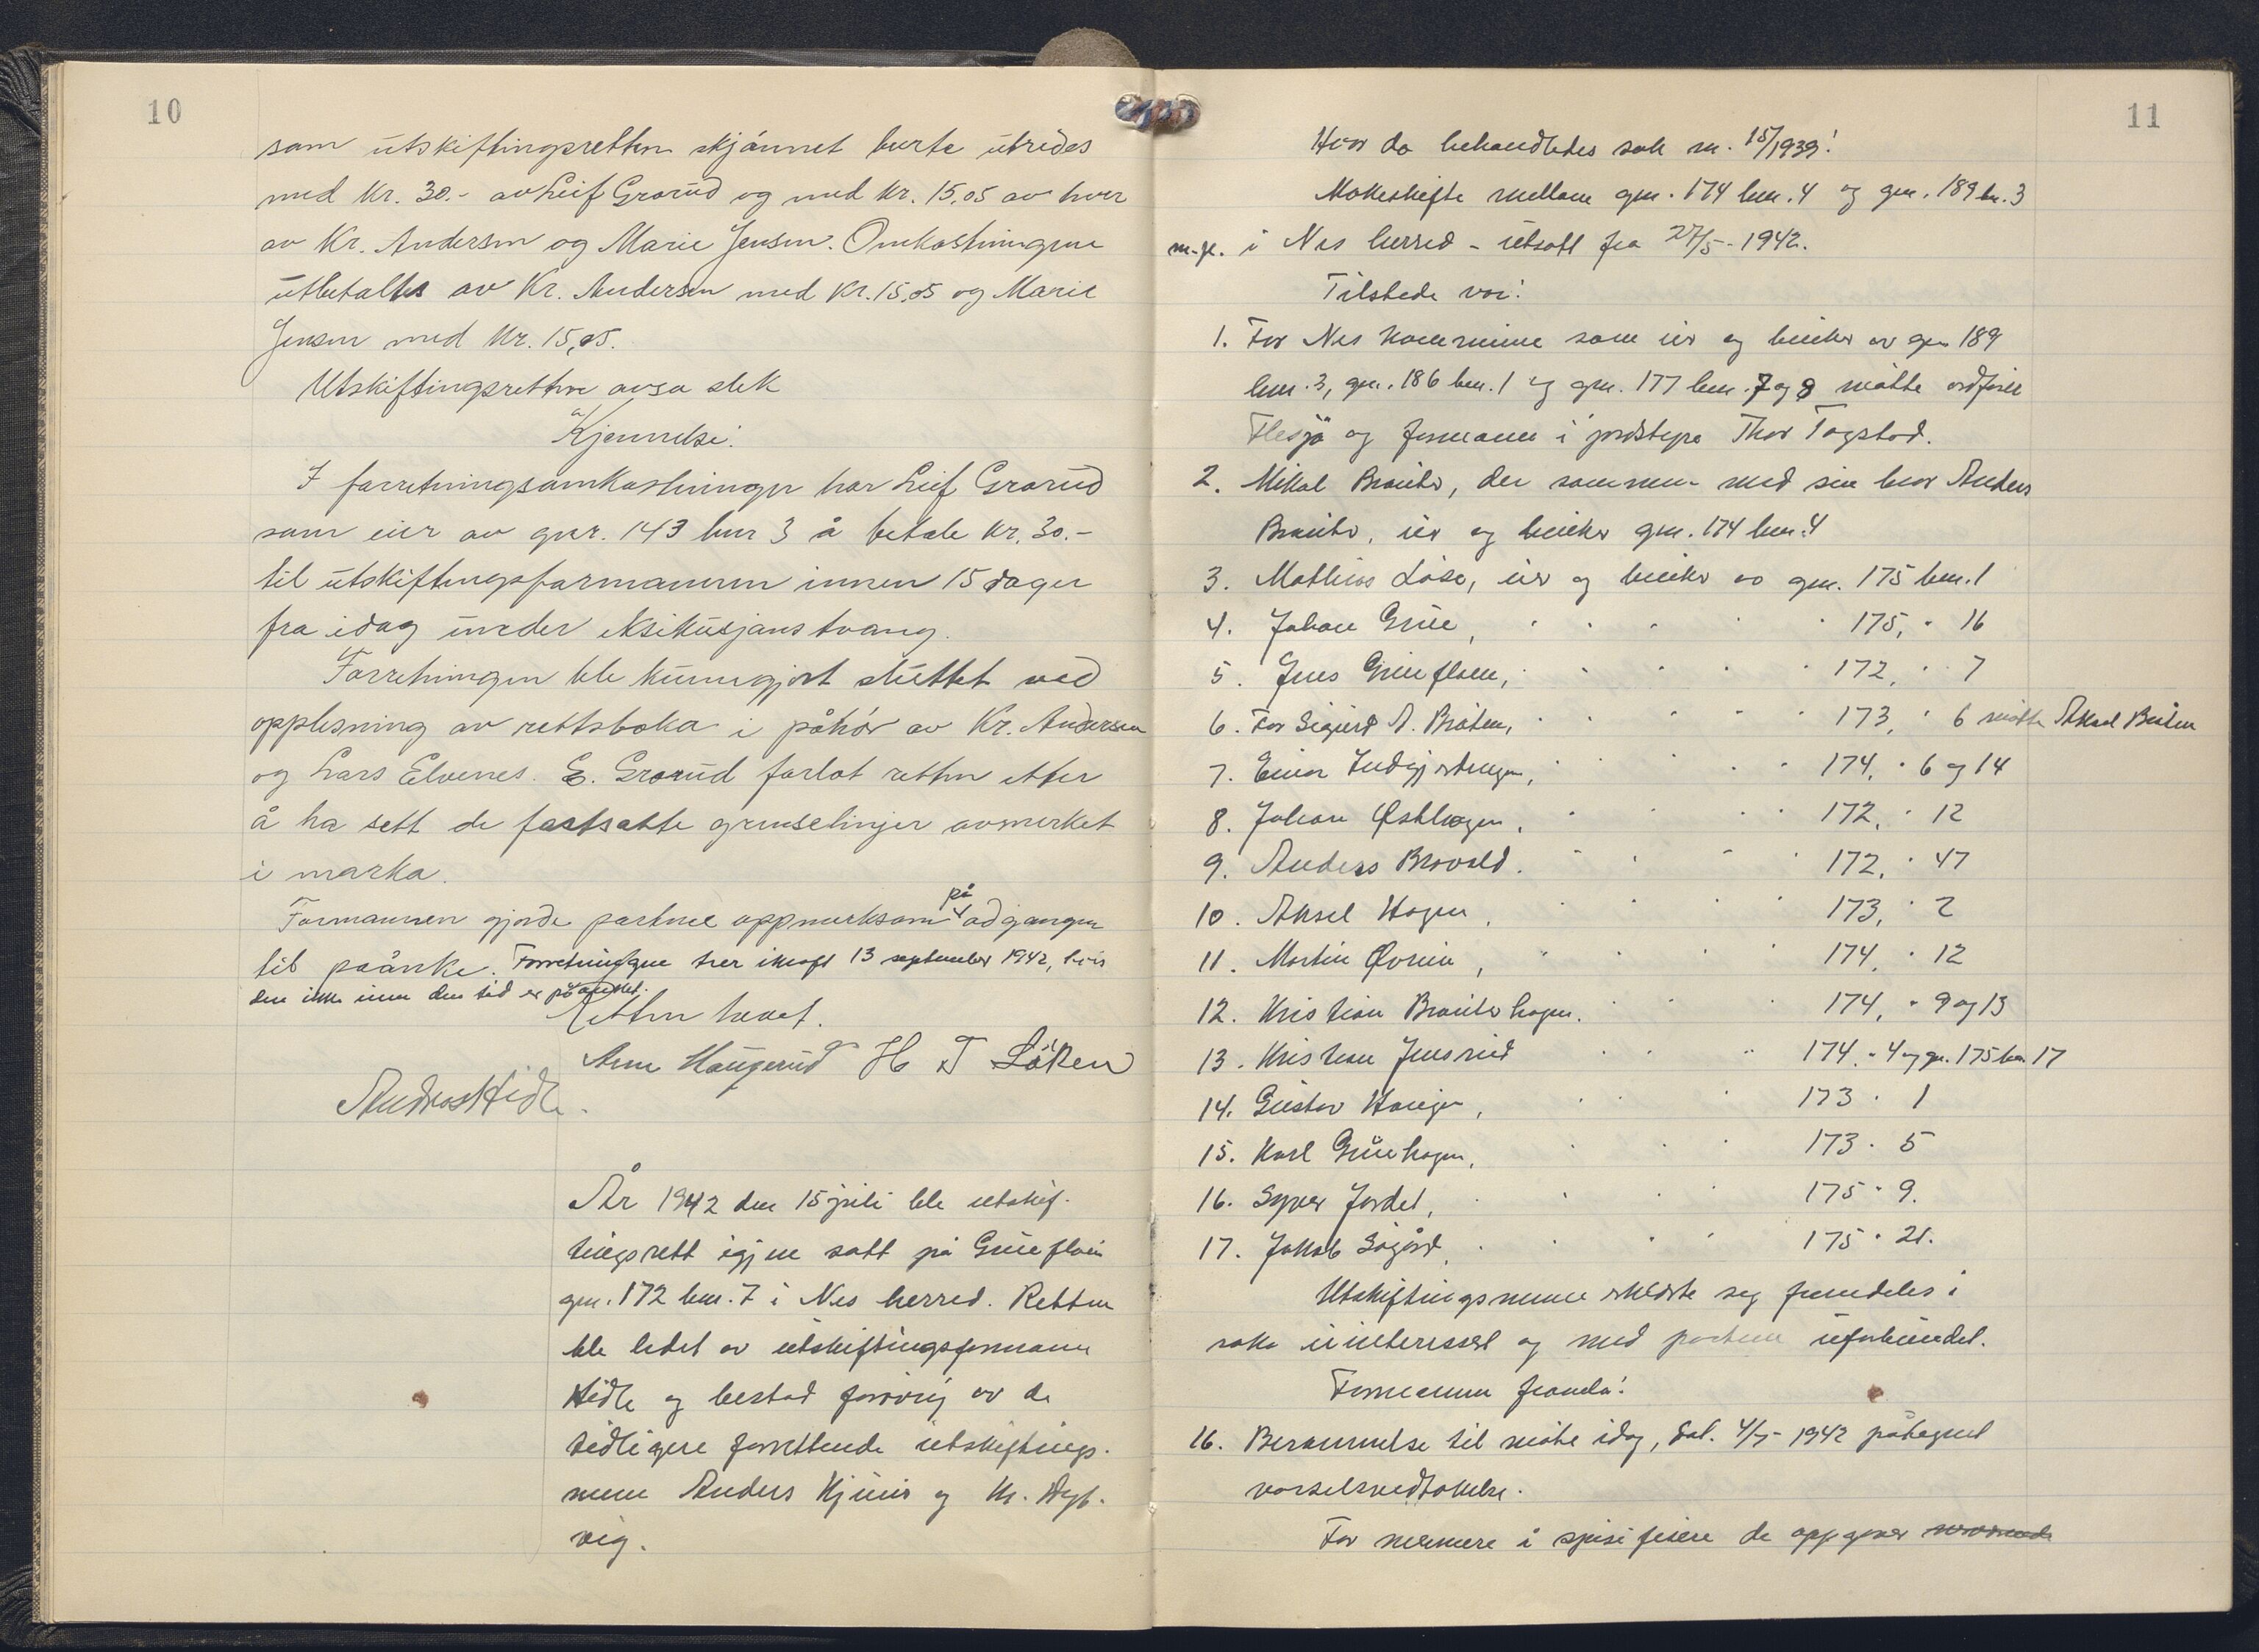 10
som utskiftingsretten skjønnet burte utredes
med kr. 30.- av Leif Grorud og med kr. 15,05 av hver
av Kr. Andersen og Marie Jensen. Omkostningene
utbetaltes av Kr. Andersen med kr. 15,05 og Marie
Jensen med kr. 15,05.
Utskiftingsretten avsa slek
Kjennelse:
I forretningsomkostninger har Leif Grorud
som eier av gnr. 143 bnr 3 å betale kr. 30.-
til utskiftingsformannen innen 15 dager
fra idag under eksekusjons tvang.
Forretningen ble kunngjort sluttet ved
opplesning av rettsboka i påhør av Kr. Andersen
og Lars Elvenes. E. Grorud forlot retten etter
å ha sett de fastsatte grenselinjer avmerket
i marka.
Formannen gjorde partene oppmerksom på adgangen
til påanke. Forretningen trer i kraft 13 september 1942, hvis
den ikke innen den tid er påanket.
Retten hevet.
Arne Haugerud H T Løken
Andreas Hidle.
År 1942 den 15 juli ble utskif-
tingsrett igjen satt på Grueflaen
gnr. 172 bnr. 7 i Nes herred. Retten
ble ledet av utskiftingsformann
Hidle og bestod forøvrig av de
tidligere forrettende utskiftings-
menn Anders Kjuus og Kr. Dyb-
vig.
11
Hvor da behandledes sak nr. 15/1939:
Makeskifte mellom gnr. 174 bnr. 4 og gnr. 189 bnr. 3
m.fl. i Nes herred - utsatt fra 27/5-1942.
Tilstede var:
1. For Nes kommune som eier og bruker av gnr 189
bnr. 3, gnr. 186 bnr. 1 og gnr. 177 bnr. 7 og 8 møtte ordfører
Flesjø og formann i jordstyre Thor Togstad.
2. Mikal Brauter, der sammen med sin bror Anders
Brauter, eier og bruker gnr. 174 bnr. 4
3. Mathias Låse, eier og bruker av gnr. 175 bnr. 1
4. Johan Grue, " " " " " 175, " 16
5. Jens Grueflaen, " " " " " 172, " 7
6. For Sigurd A. Bråten, " " " " " 173, " 6 møtte Aksel Bråten
7. Einar " " " " " 174, " 6 og 14
8. Johan Østhagen, " " " " 172, " 12
9. Anders Brovold. " " " " 172, " 47
10. Aksel Hagen, " " " " 173, " 2
11. Martin Øvrien, " " " " 174, " 12
12. Kristian Brauterhagen. " " " 174, " 9 og 13
13. Kristian Jensrud " " " 174. " 4 og gnr. 175 bnr 17
14. Gustav Haugen, " " " 173 " 1
15. Karl Gruehagen, " " " 173 " 5
16. Syver Jordet, " " " " 175 " 9.
17. Jakob Sågård, " " " " 175 " 21.
Utskiftingsmenne erklærte seg fremdeles i
saka uinteressert og med partene uforbundet.
Formannen framla:
16. Berammelse til møte idag, dat. 4/7-1942 påtegnet
varselsvedtakelse.
For nærmere å spesifisere de oppgaver